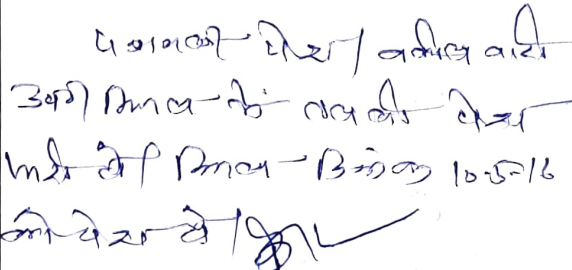 पत्रावली पेश। वकील वादी
उप० मिसल में तलबी पेश
नहीं की। मिसल दिनांक 10-5-16
को पेश हो।